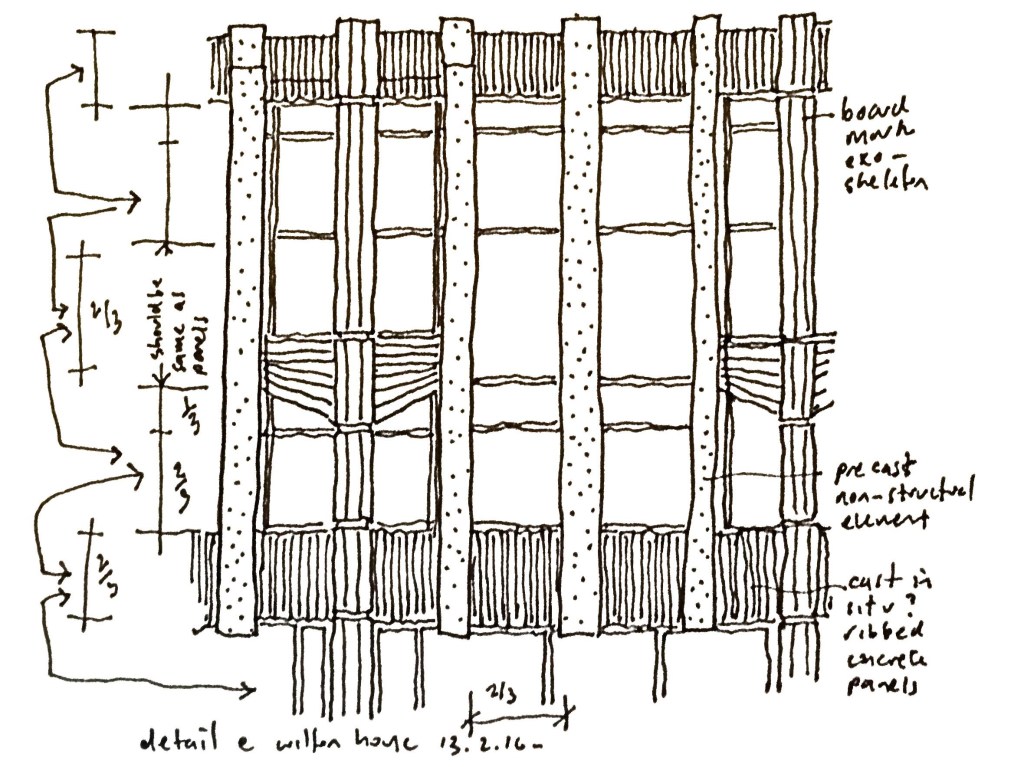 board
mark
exo-
skeleton
2/3
should be
same as
panels
1/3
2/3
precast
non-structural
element
2/3
cast in
situ?
ribbed
concrete
panels
2/3
detail e wilton house 13.2.16-